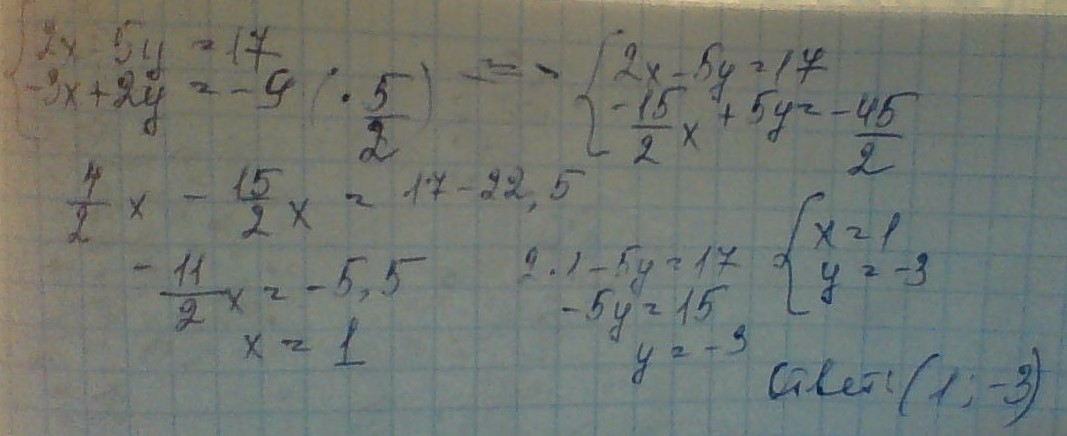 2x - 5y = 17
-3x + 2y = -9 (· 5/2) =
{ 2x - 5y = 17
-15/2 x + 5y = -45/2
4/2 x - 15/2 x = 17 - 22,5
-11/2 x = -5,5
x = 1
2·1 - 5y = 17
-5y = 15
y = -3
{ x = 1
y = -3
Ответ: (1; -3)